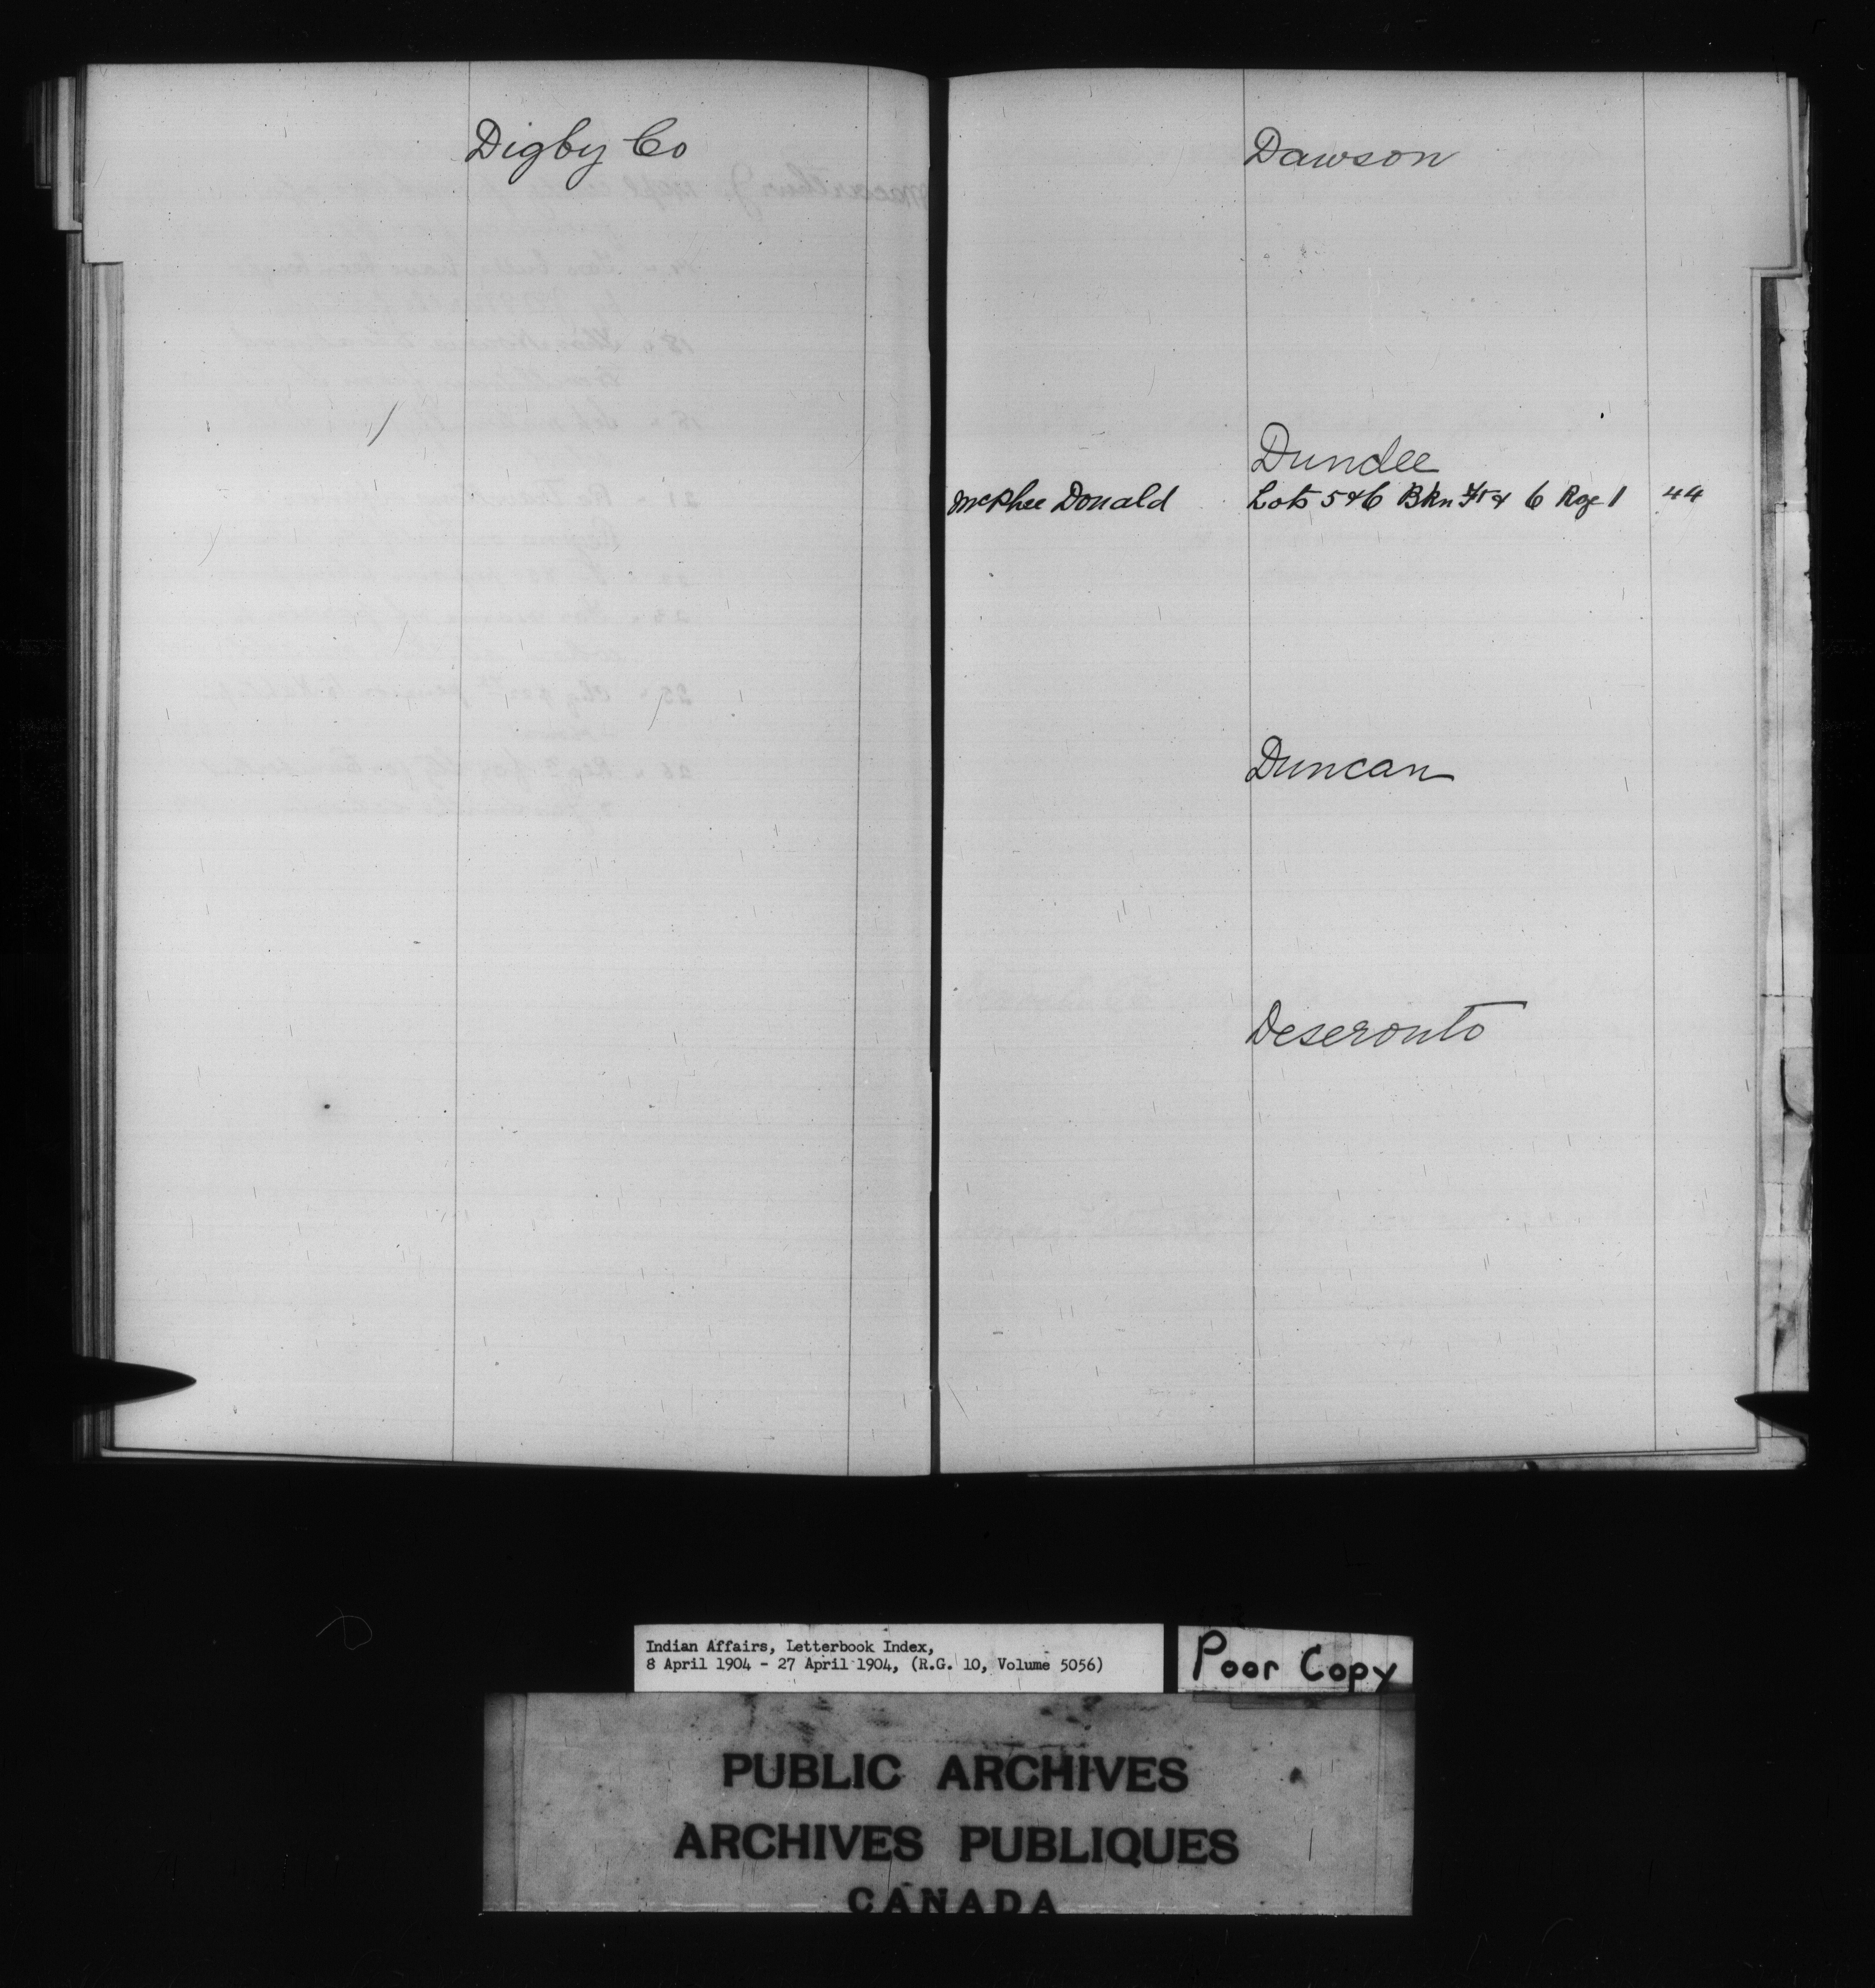 Digby Co
Dawson
Dundee
McPhee Donald Lots 5 & 6 Bkn Ft & 6 Rge 1 44
Duncan
Deseronto
Indian Affairs, Letterbook Index,
8 April 1904 - 27 April 1904, (R.G. 10, Volume 5056)
Poor Copy
PUBLIC ARCHIVES
ARCHIVES PUBLIQUES
CANADA